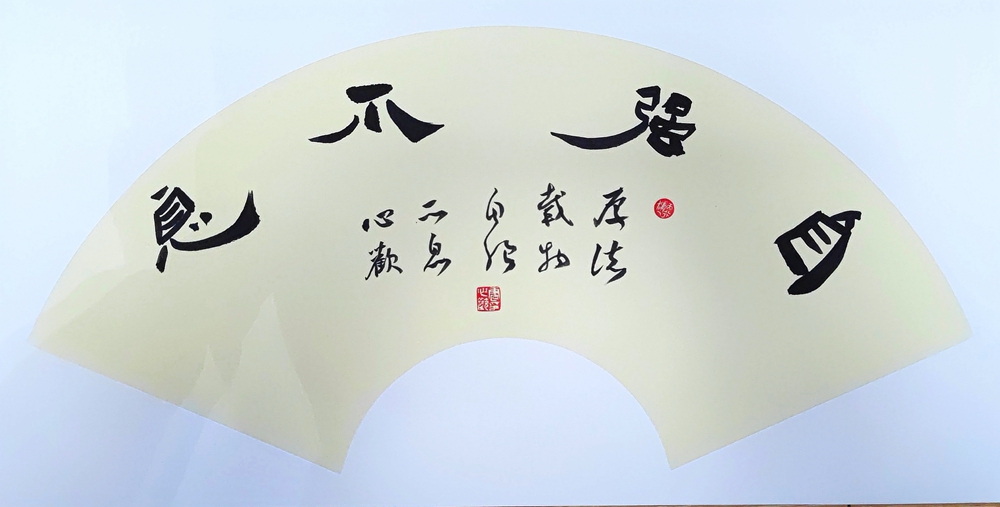 自强不息
厚德
载物
自强
不息
心歡